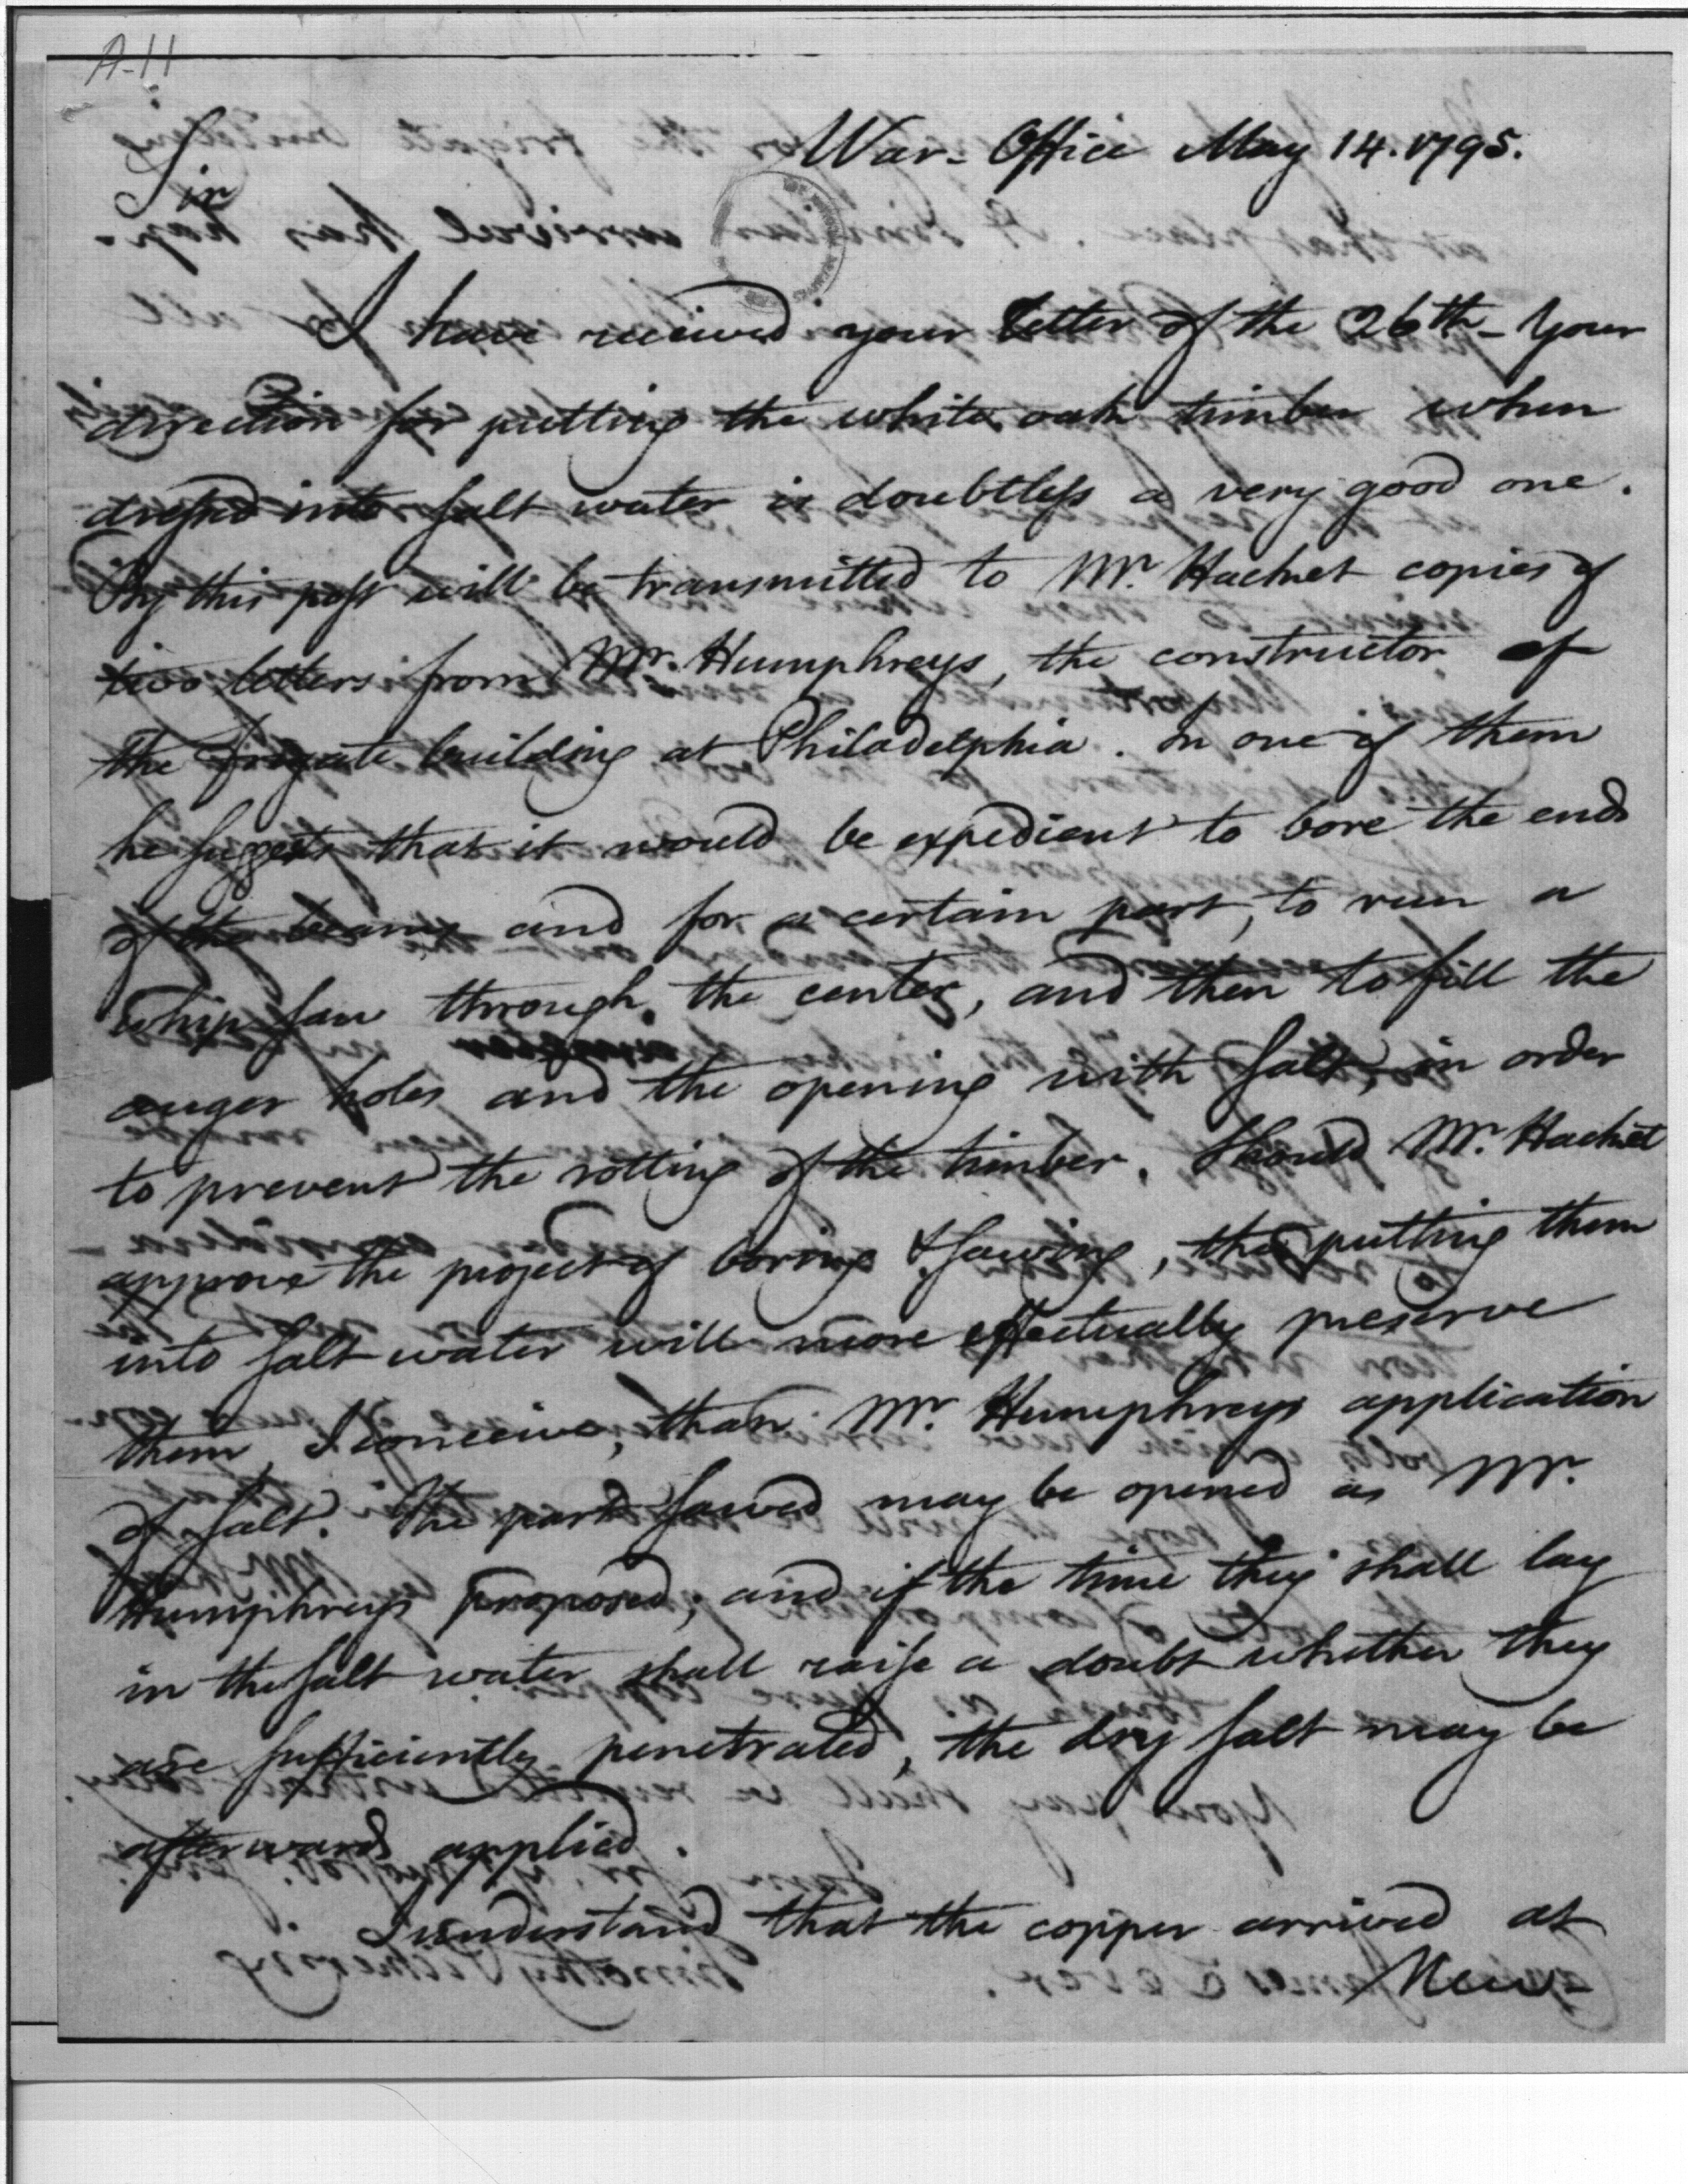 A-11
War-Office May 14. 1795.
Sir
I have received your letter of the 26th- Your
direction for putting the white oak timber when
dressed into salt water is doubtless a very good one.
By this post will be transmitted to Mr. Hacket copies of
two letters from Mr. Humphreys, the constructor of
the frigate building at Philadelphia. In one of them
he suggests that it would be expedient to bore the ends
of the beams and for a certain part, to run a
whip saw through the center, and then to fill the
auger holes and the opening with salt, in order
to prevent the rotting of the timber. Should Mr. Hacket
approve the project of boring & sawing, the putting them
into salt water will more effectually preserve
them, I conceive, than Mr. Humphreys application
of salt. The part sawed may be opened as Mr.
Humphreys proposed; and if the time they shall lay
in the salt water shall raise a doubt whether they
are sufficiently penetrated, the dry salt may be
afterwards applied.
I understand that the copper arrived at
New-